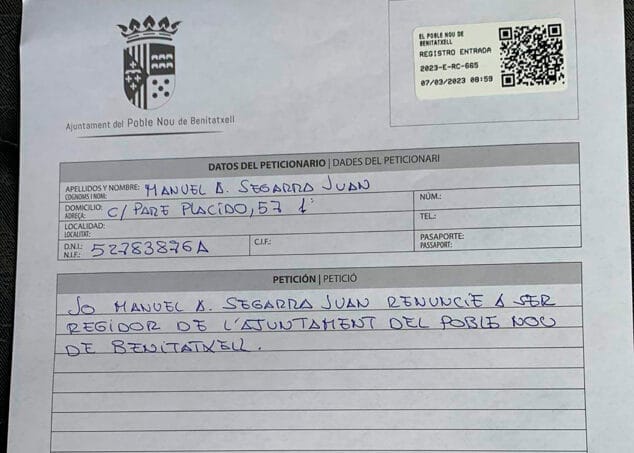 Ajuntament del Poble Nou de Benitatxell
EL POBLE NOU DE
BENITATXELL
REGISTRO ENTRADA
2023-E-RC-665
07/03/2023 08:59
DATOS DEL PETICIONARIO | DADES DEL PETICIONARI
APELLIDOS Y NOMBRE: MANUEL A. SEGARRA JUAN
COGNOMS I NOM:
DOMICILIO: C/ PARE PLACIDO, 57 1º NÚM.:
ADREÇA:
LOCALIDAD: TEL.:
LOCALITAT:
D.N.I.: 52783876A C.I.F.: PASAPORTE:
N.I.F.: PASSAPORT:
PETICIÓN | PETICIÓ
JO MANUEL A. SEGARRA JUAN RENUNCIE A SER
REGIDOR DE L'AJUNTAMENT DEL POBLE NOU
DE BENITATXELL.